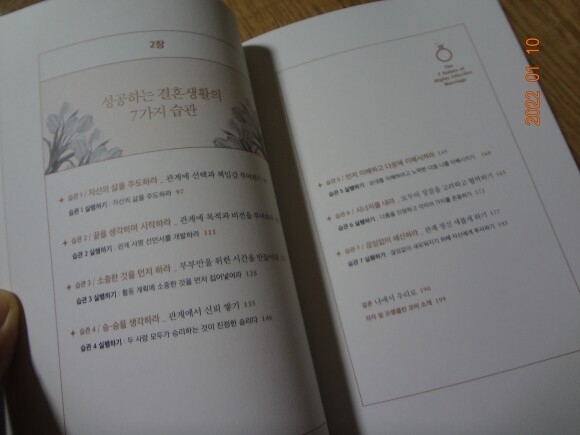 2장
성공하는 결혼생활의
7가지 습관
습관 1 / 자신의 삶을 주도하라 _ 관계에 선택과 책임감
습관 1 실행하기 : 자신의 삶을 주도하라 97
습관 2 / 끝을 생각하며 시작하라 _ 관계에 목적과 비전을
습관 2 실행하기 : 관계 사명 선언서를 개발하라 115
습관 3 / 소중한 것을 먼저 하라 _ 부부만을 위한 시간을
습관 3 실행하기 : 활동 계획에 소중한 것을 먼저 집어넣어라 128
습관 4 / 승-승을 생각하라 _ 관계에서 신뢰 쌓기 135
습관 4 실행하기 : 두 사람 모두가 승리하는 것이 진정한 승리다 146
The
7 Habits of
Highly Effective
Marriage
습관 5 / 먼저 이해하고 다음에 이해시켜라 149
습관 5 실행하기 : 상대를 이해하고 노력한 다음 나를 이해시키기
습관 6 / 시너지를 내라 _ 모두의 장점을 고려하고 협력하기
습관 6 실행하기 : 다름을 인정하고 각자의 가치를 존중하기 173
습관 7 / 끊임없이 쇄신하라 _ 관계 갱신 새롭게 하기 177
습관 7 실행하기 : 끊임없이 새로워지기 위해 자신에게 투자하기
결론 나에서 우리로 196
저자 및 프랭클린 코비 소개 199
2022 01 10